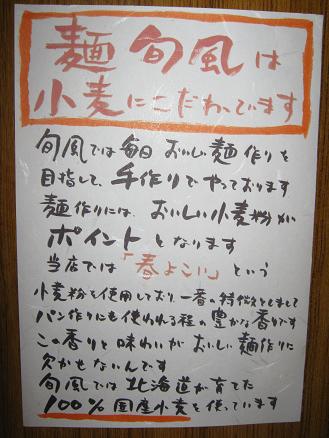 麺 旬風は
小麦にこだわってます
旬風では毎日 おいしい麺作りを
目指して、手作りでやっております
麺作りには、おいしい小麦粉が
ポイントとなります
当店では「春よこい」という
小麦粉を使用しており、一番の特徴としまして
パン作りにも使われる程の豊かな香りです
この香りと味わいがおいしい麺作りに
欠かせないんです
旬風では北海道が育てた
100%国産小麦を使っています